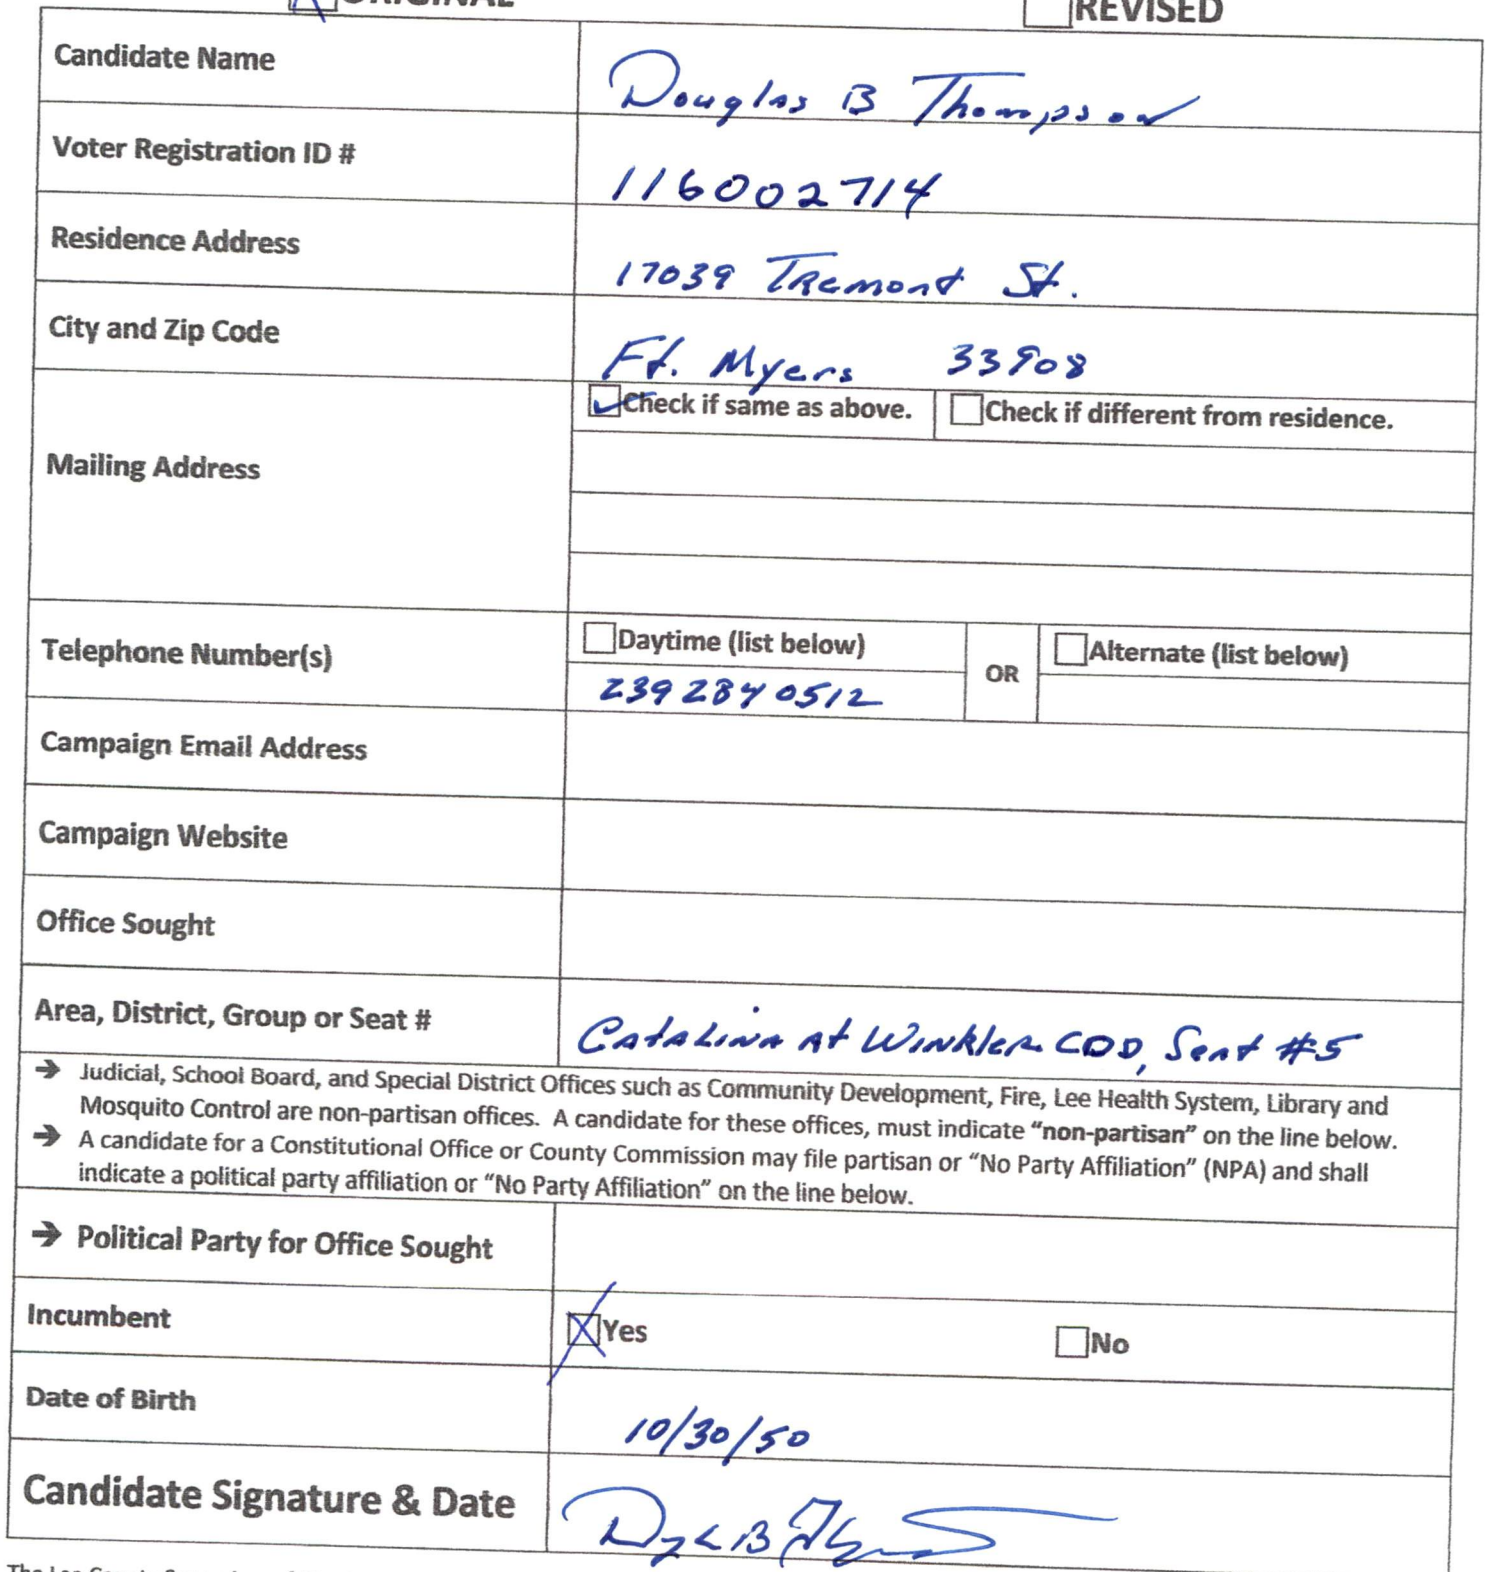 ORIGINAL REVISED
Candidate Name Douglas B Thompson
Voter Registration ID # 116002714
Residence Address 17039 Tremont St.
City and Zip Code Ft. Myers 33908
Check if same as above. Check if different from residence.
Mailing Address
Daytime (list below) OR Alternate (list below)
Telephone Number(s) 239 284 0512
Campaign Email Address
Campaign Website
Office Sought
Area, District, Group or Seat # Catalina At Winkler CDD, Seat #5
→ Judicial, School Board, and Special District Offices such as Community Development, Fire, Lee Health System, Library and
Mosquito Control are non-partisan offices. A candidate for these offices, must indicate “non-partisan” on the line below.
→ A candidate for a Constitutional Office or County Commission may file partisan or “No Party Affiliation” (NPA) and shall
indicate a political party affiliation or “No Party Affiliation” on the line below.
→ Political Party for Office Sought
Incumbent Yes No
Date of Birth 10/30/50
Candidate Signature & Date